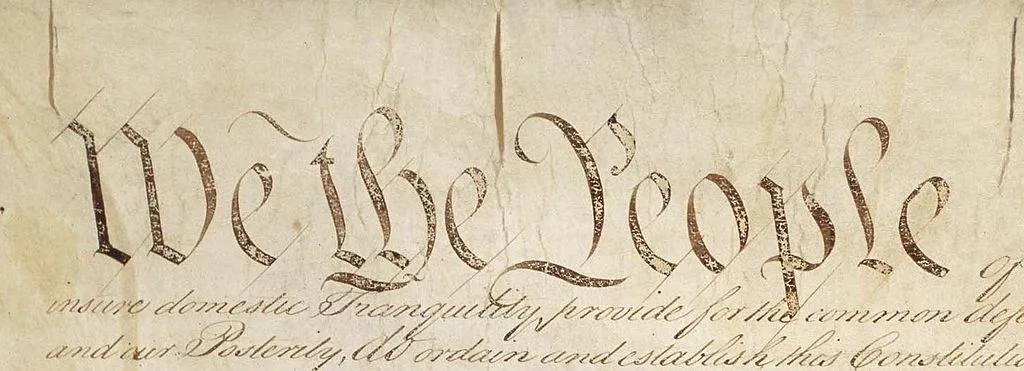 We the People
of
insure domestic Tranquility, provide for the common
and our Posterity, do ordain and establish this